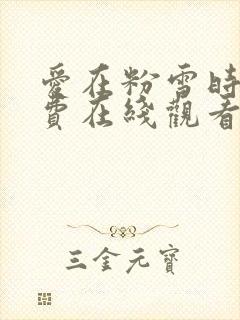 愛在粉雪時
費在綫觀看
三金元寶